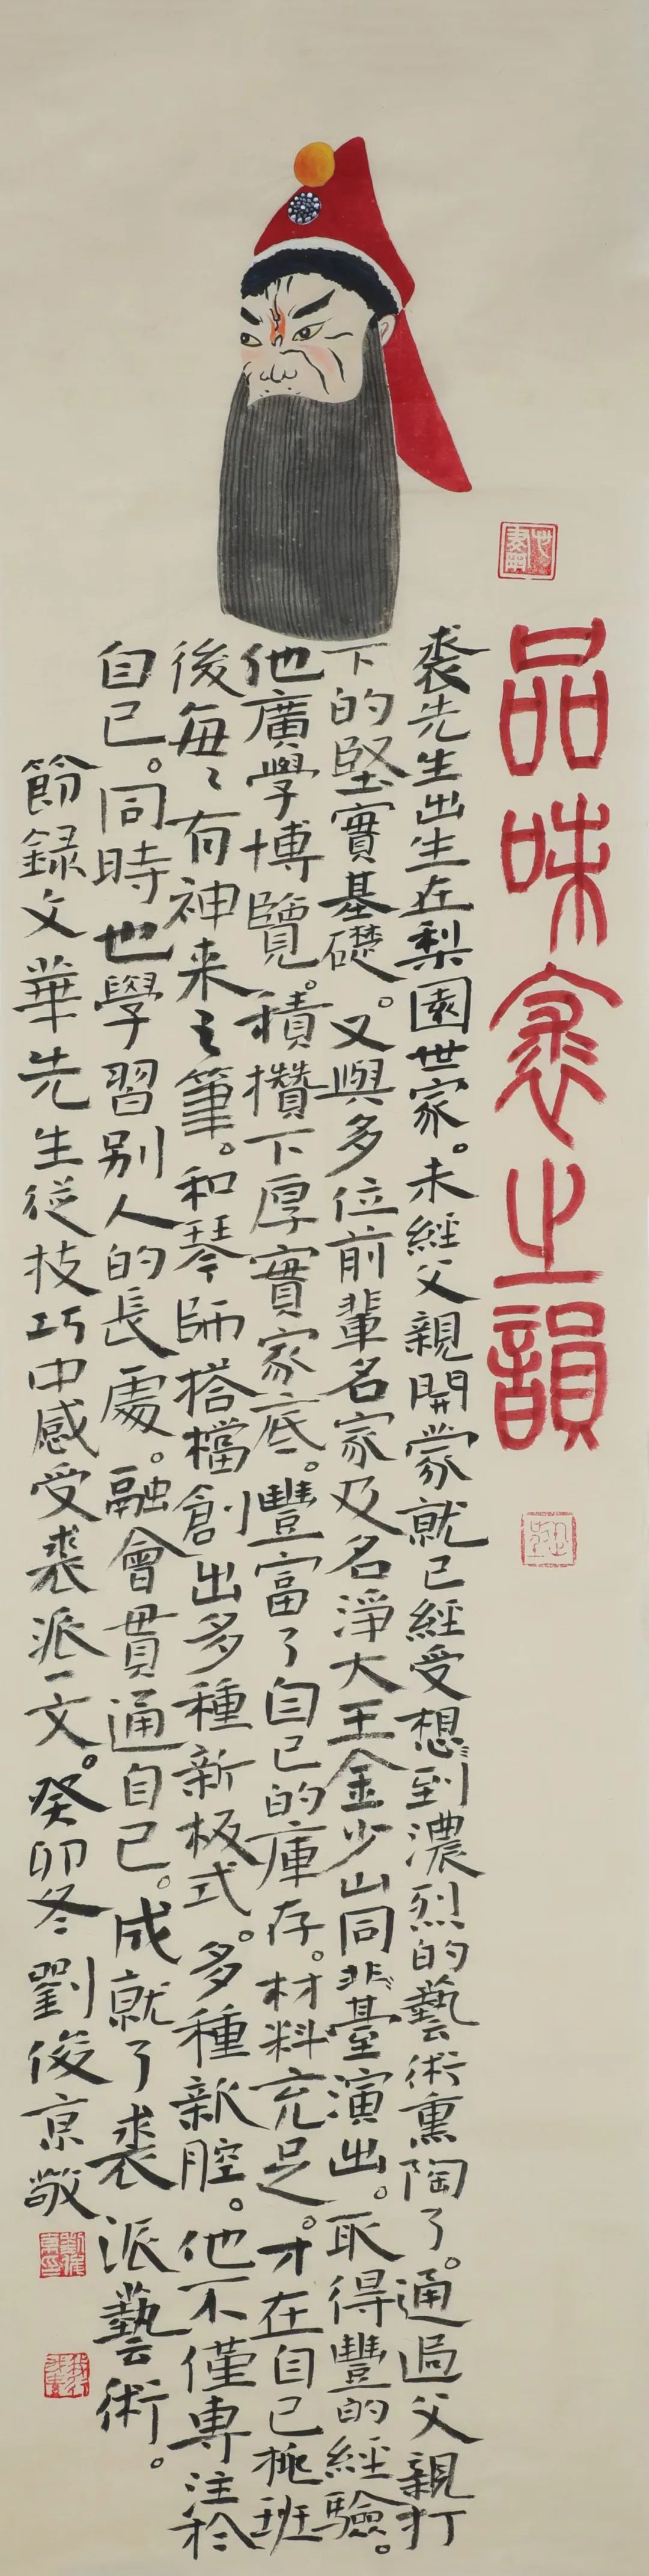 品味裘之韻
裘先生出生在梨園世家。未經父親開蒙就已經受想到濃烈的藝術熏陶了。通過父親打
下的堅實基礎。又與多位前輩名家及名淨大王金少山同臺演出。取得豐的經驗。
他廣學博覽。積攢下厚實家底。豐富了自己的庫存。材料充足。才在自己挑班
後每々有神来之筆。和琴師搭檔創出多種新板式。多種新腔。他不僅專注於
自己。同時也學習别人的長處。融會貫通自己。成就了裘派藝術。
節録文華先生從技巧中感受裘派一文。癸卯冬劉俊京敬